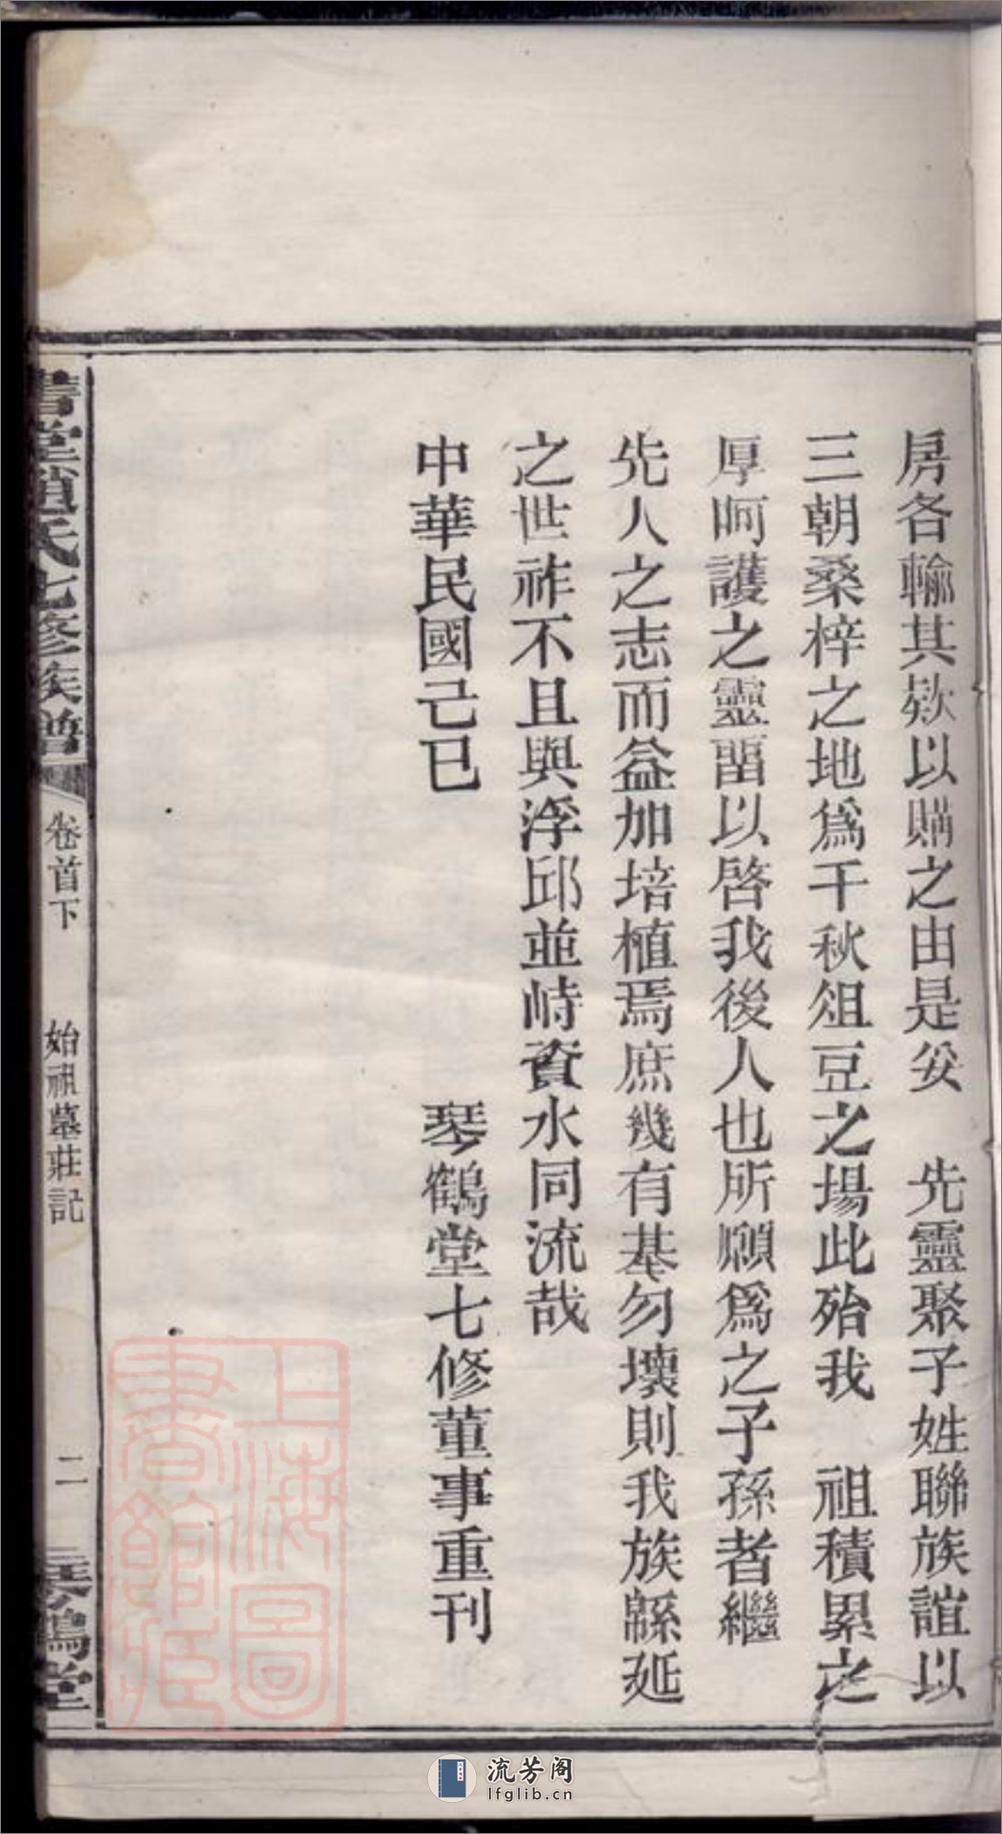 房各輸其欵以購之由是妥　先靈聚子姓聯族誼以
三朝桑梓之地爲千秋俎豆之場此殆我　祖積累之
厚呵護之靈畱以啓我後人也所願爲之子孫者繼
先人之志而益加培植焉庶幾有基勿壞則我族緜延
之世祚不且與浮邱並峙資水同流哉
中華民國己巳　琴鶴堂七修董事重刊
書堂趙氏七修族譜　卷首下　始祖墓莊記　二　琴鶴堂
上海圖書館藏
流芳阁
lfglib.cn